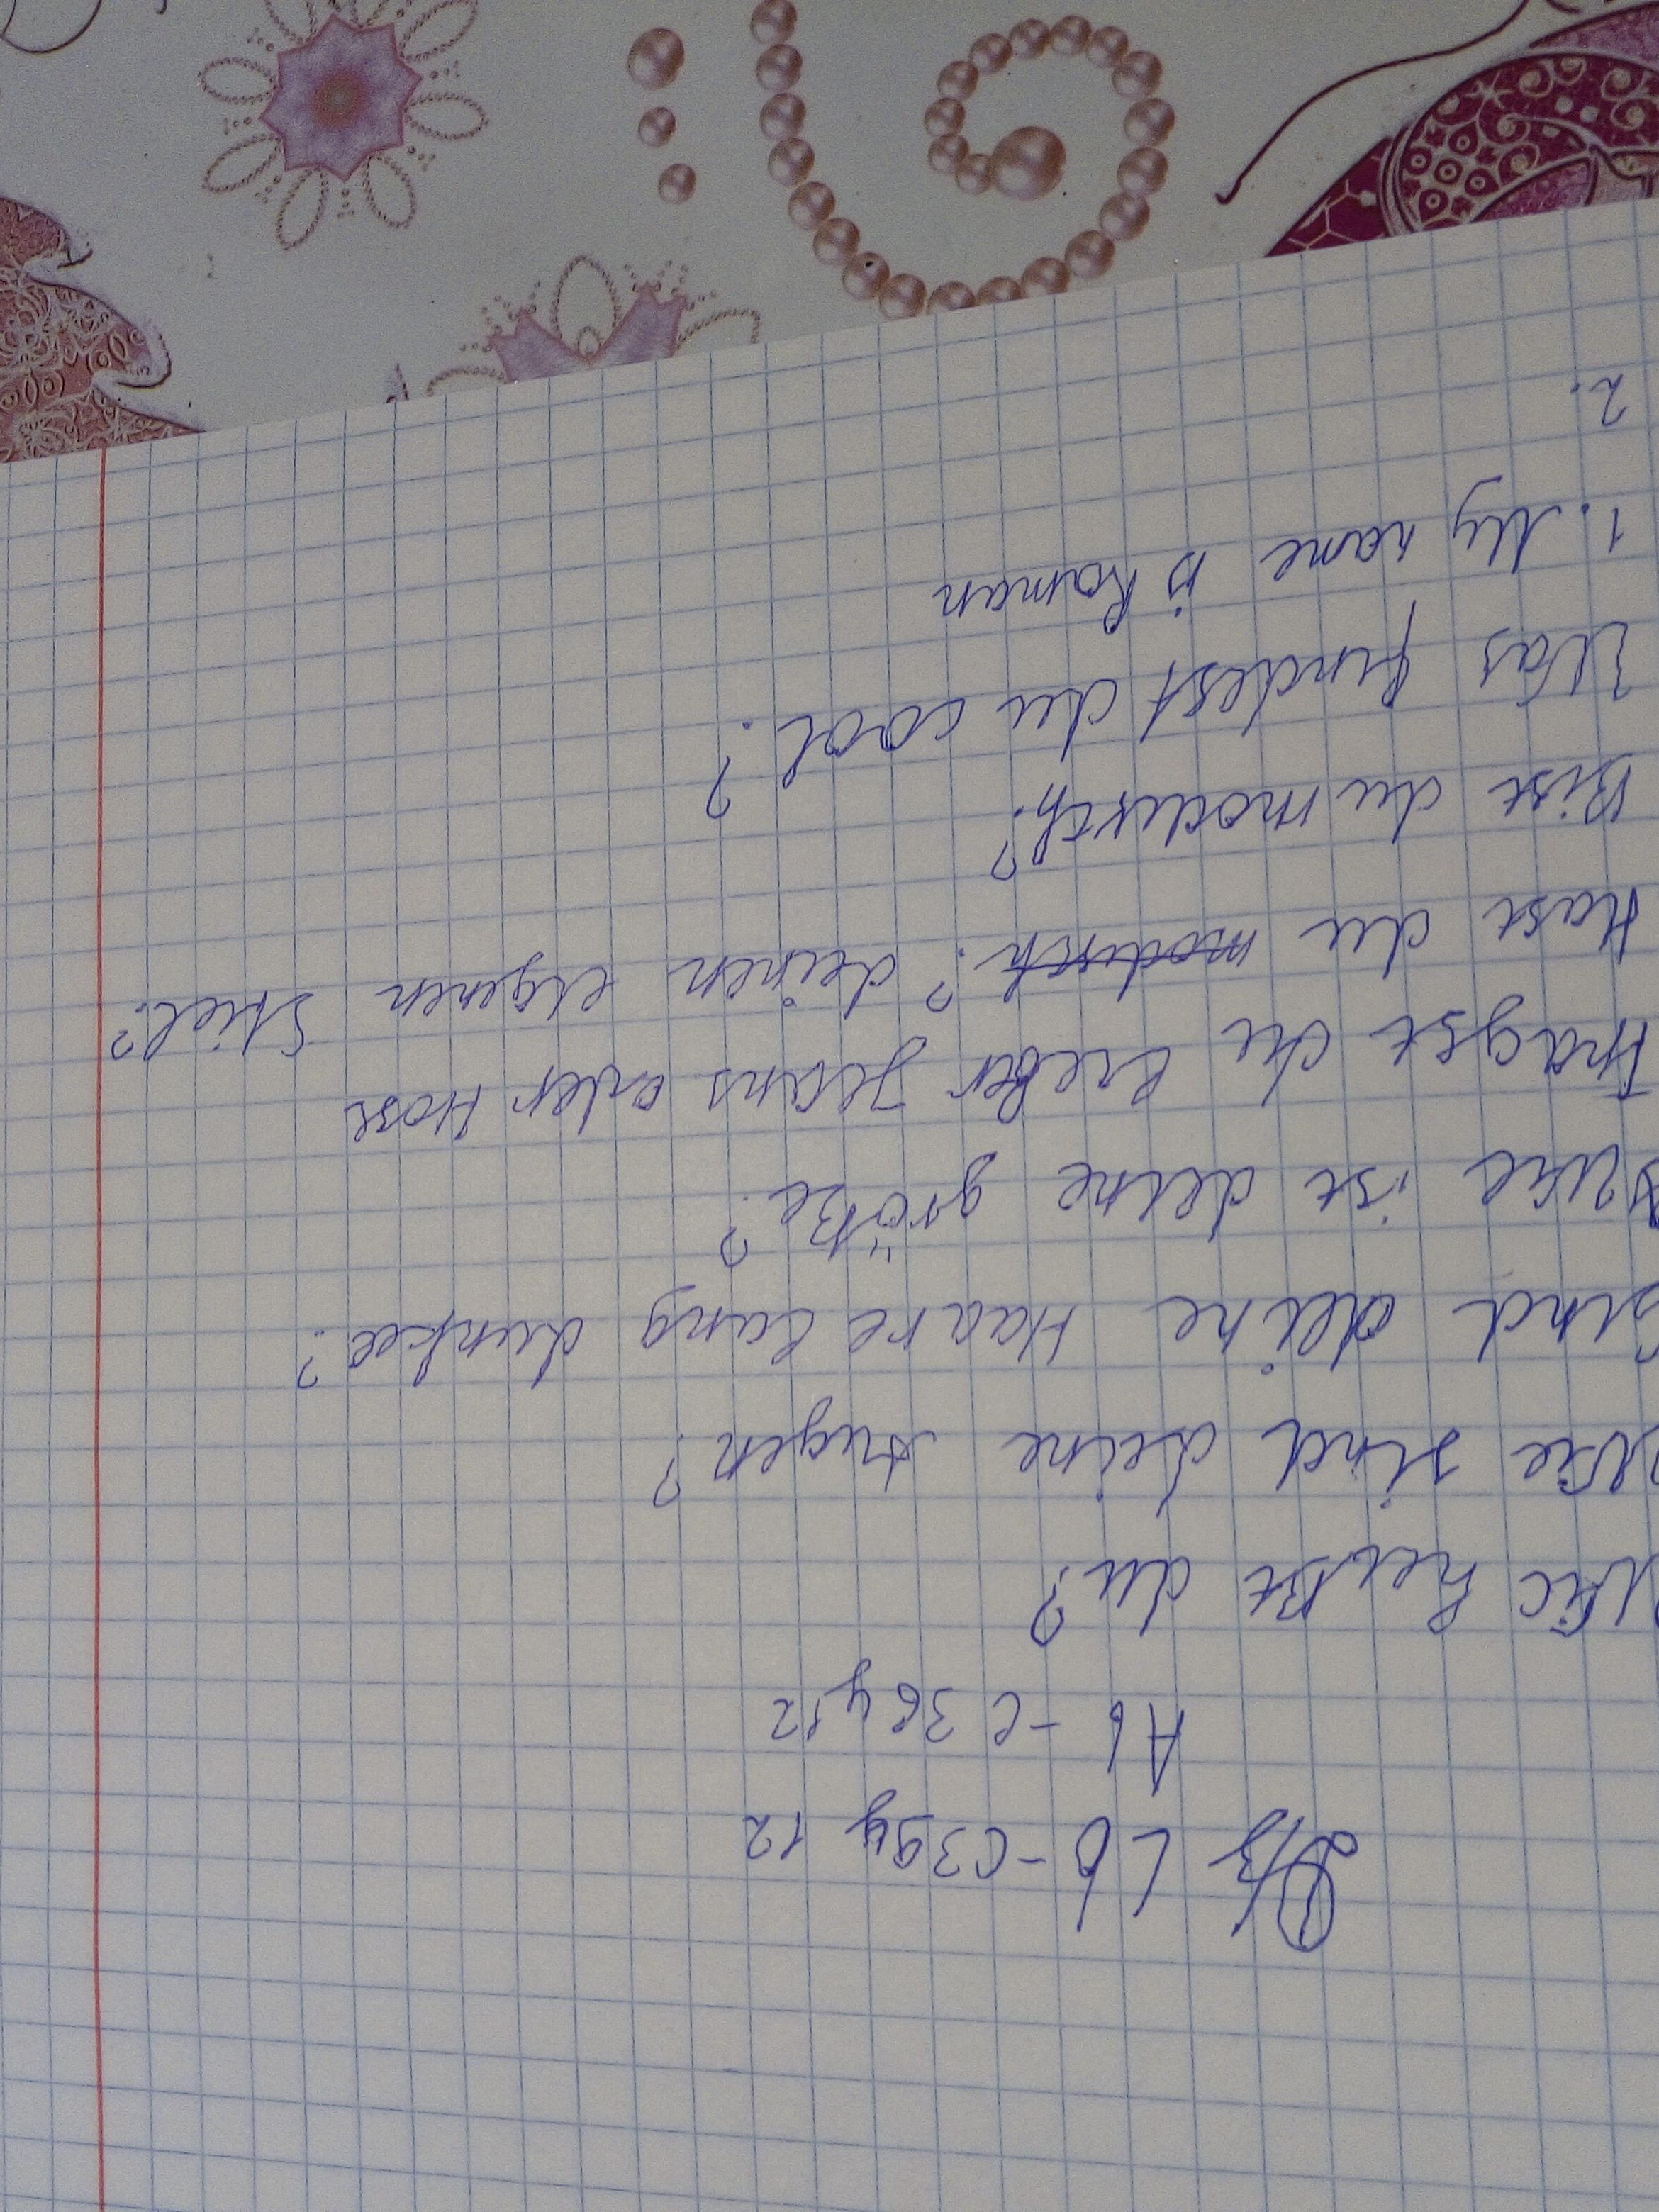 Д/з Lб - с 39 у 12
Аб - с 36 у 12
Wie heißt du?
Wie sind deine Augen?
Sind deine Haare lang dunkel?
Wie ist deine größe?
Trägst du lieber Jeans oder Hose
Hast du modisch? deinen eigenen Stiel?
Bist du modisch?
Was findest du cool?
1. My name is Roman
2.